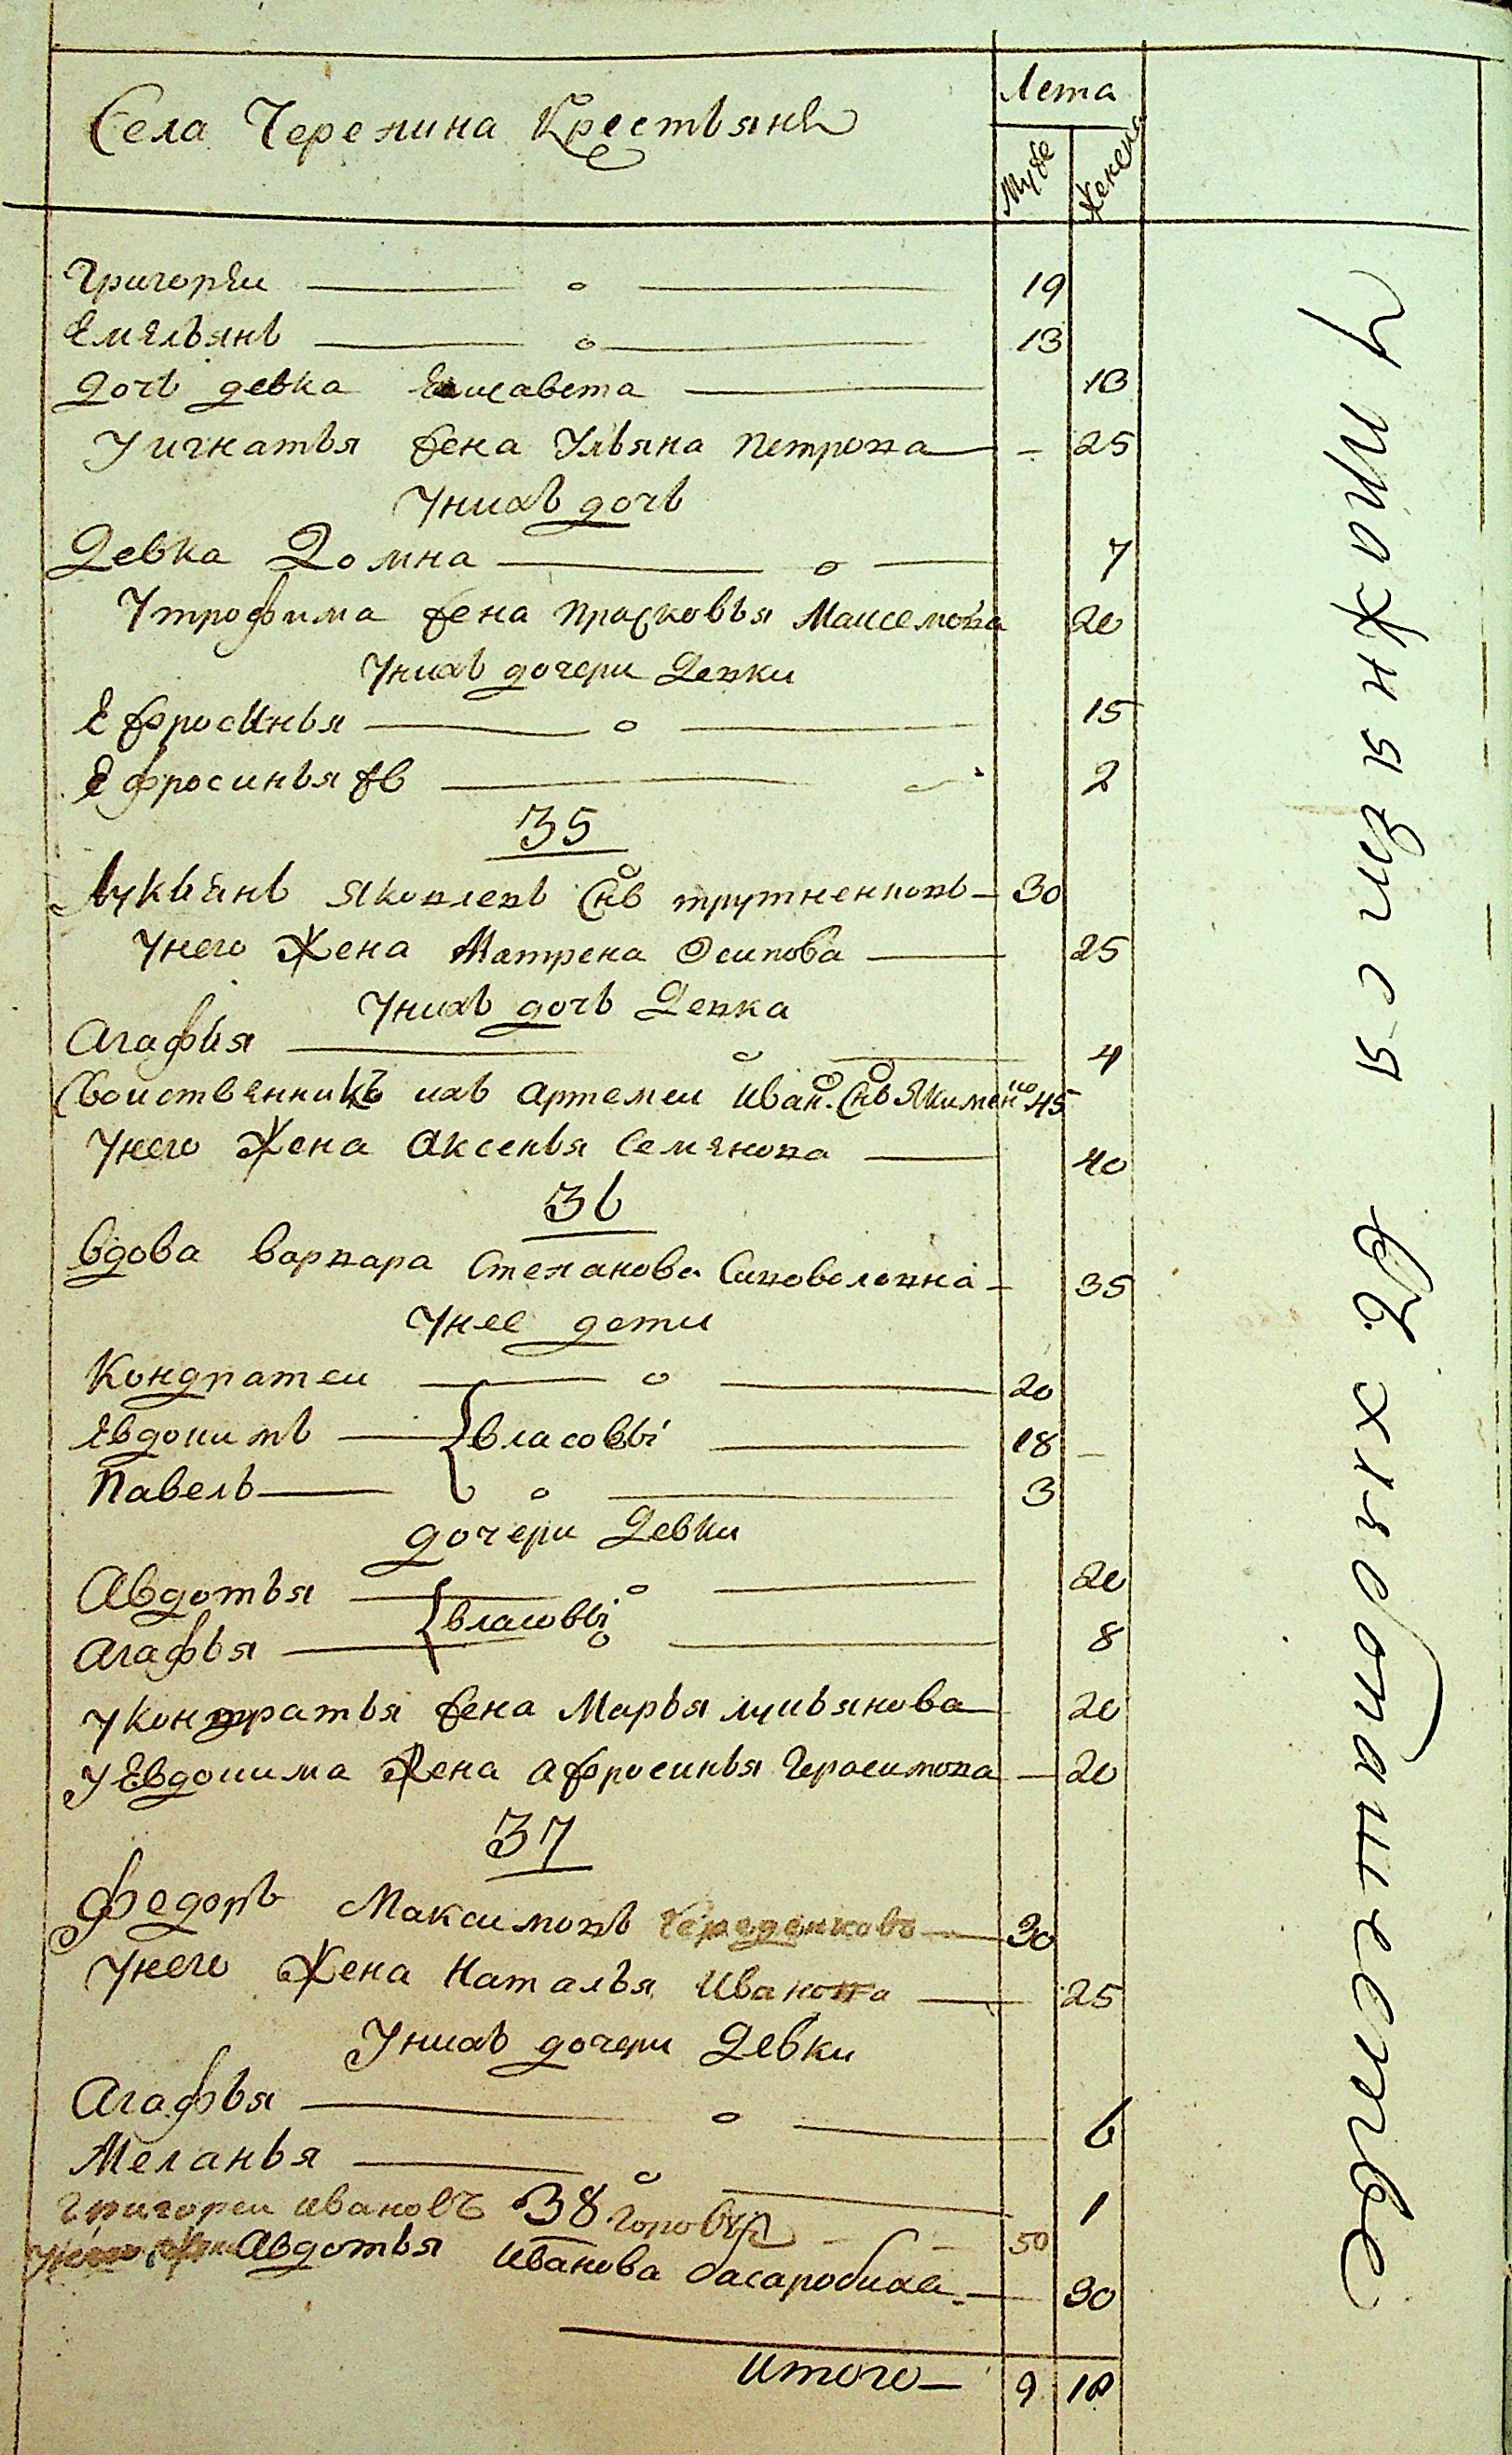 Села Черенина Крестьянѣ
Лета
Муже
Женска
Григорѣи 19
Емельянъ 13
Дочь девка Елисавета 13
У игнатья жена Ульяна Петрова 25
У нихъ дочь
Девка Домна 7
У трофима жена Прасковья 20
У нихъ дочери Девки
Ефросинья 15
Ефросинья жъ 2
35
Лукьянъ Яковлевъ Снъ 30
У него Жена Матрена Осипова 25
У нихъ дочь Девка
Агафья 4
Свойственникъ ихъ Артемеи Иван. Снъ 45
У него Жена Аксенья Семенова 40
36
Вдова варвара Степанова 35
У нее дети
Кондратеи 20
Евдокимъ Власовы 18
Павелъ 3
дочери Девки
Авдотья 20
Власовы
Агафья 8
У Кондратья жена Марья лукьянова 20
У Евдокима Жена афросинья Герасимова 20
37
Федоръ Максимовъ 30
У него Жена Наталья Иванова 25
У нихъ дочери Девки
Агафья 6
Меланья 1
38
Григореи ивановъ 50
Авдотья Иванова 30
Итого 9 18
упражняизся
в хлебопашестве